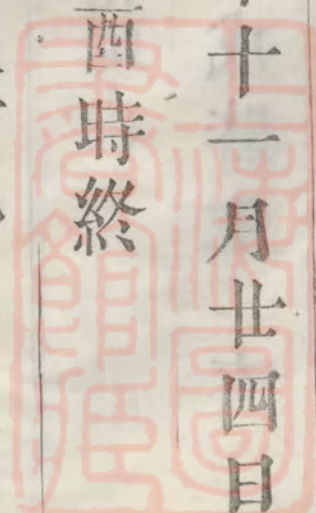 十一月廿四日
酉時終